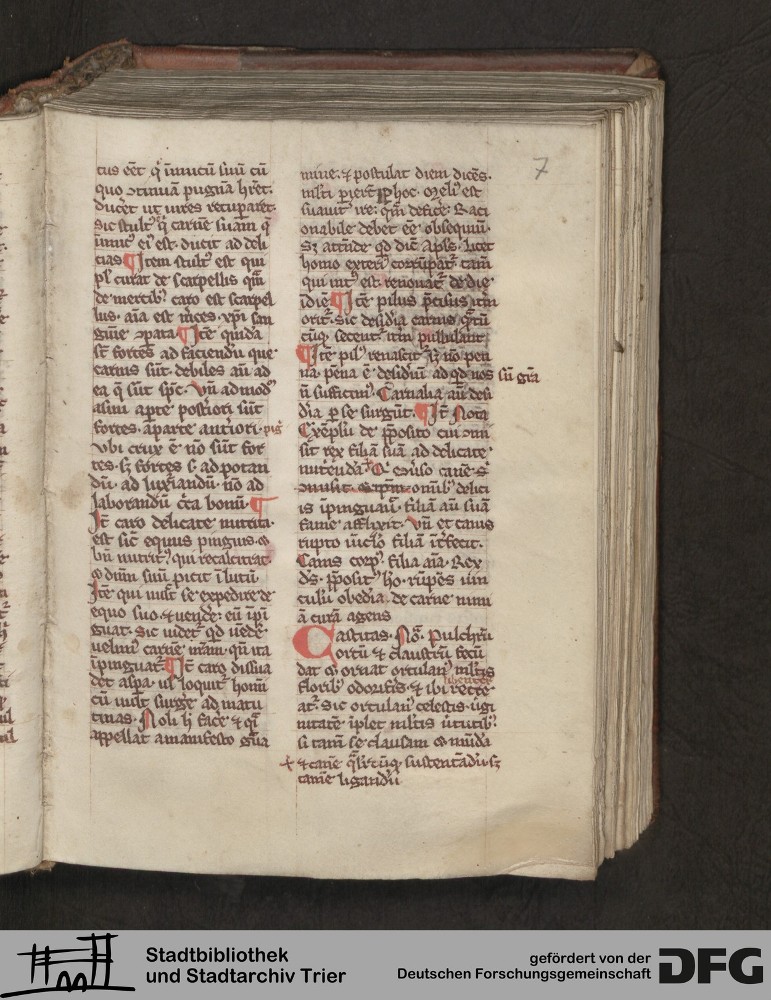 tus eēt q̄ īimicū suū cū
quo ꝯtinuā pugnā hr̄et.
ducēt ut uires recuparet.
Sic stult' q̄ carnē suam q̄
īimic' ei' est. ducit ad deli
cias ¶ Item stult' est qui
pl' curat de scarpellis qm̄
de mercib'. caro est scarpel
lus. aīa est m̄ces. xp̄i san
guīe ꝯpata. ¶ Itē quidā
st̄ fortes ad faciendū que
carnis sūt. debiles aū ad
ea q̄ sūt sp̄c. Vn̄ ad mod'
asini a pte post'iori sūt
fortes. a parte ant'iori. pig'
Vbi crux ē nō sūt for
tes. sʒ fortes s̄ ad potan
dū. ad luxʼiandū. nō ad
laborandū c̄ca bonū. ¶
It̄ caro delicate nutrita.
est sic̄ equus pinguis. ⁊
bn̄ nutrit'. qui recalcitrat.
⁊ dn̄m suū ꝓicit ī lutū
Itē qui uult se expedire de
equo suo. ⁊ uend'e eū īpī
guat. Sic uidet' qd̓ uēdē
uelim' carnē nr̄am. qn̄ ita
īpinguat'. ¶ It̄ caro dissua
det aspa. ul' loquit' homī
cū uult surg̓e ad matu
tinas. Noli h̓ face ⁊ q̄i
appellat a manifesto gͣua
mine. ⁊ postulat diem dicēs.
mʼlti pierūt ꝑ hoc. ꝯ mel' est
suauit' ire. qm̄ defic̓e. Raci
onabile debet eē obseqium.
Sʒ attn̄de qd̓ dic̄ apl's. licet
homo exterʼ corrūpat'. tam̄
qui int' est renouat' de die
ī diē ¶ Itē pilus p̄cisus itm̄
orit'. Sic desid'ia carnis qn̄tū
cūq; secent' itm̄ pullulant
¶ Itē pil' renascit' sʒ nō pen
na. penna ē desid'iū ad qd̓ nos sn̄ gr̄a
n̄ sufficim'. Carnalia aū desi
d'ia p se surgūt. ¶ It̄ Nota
Exēplū de p̄posito cui ꝯmi
sit rex filiā suā ad delicate
nutrienda
omib' delici
is īpinguauit. filiā aū suā
fame afflixit. Vn̄ et canis
rupto uīclo filiā īt'fecit.
Canis corp'. filia aīa. Rex
d's. p̄posit' ho. rūpēs uin
culū obedīe. de carne nimi
ā curā agens
Castitas. No. Pulchrū
ortū ⁊ claustrū fecū
dat ⁊ ornat ortulan' mʼltis
libenter
florib' odorifis. ⁊ ibi recree
at'. Sic ortulan' celestis uigi
nitatē īplet mʼltis uirtutib'.
si tam̄ se clausam ⁊ mūda
+ ⁊ canē qͣl'rcūq; sustentādū sʒ
tamē ligandū
7
Stadtbibliothek
und Stadtarchiv Trier
gefördert von der
Deutschen Forschungsgemeinschaft
DFG